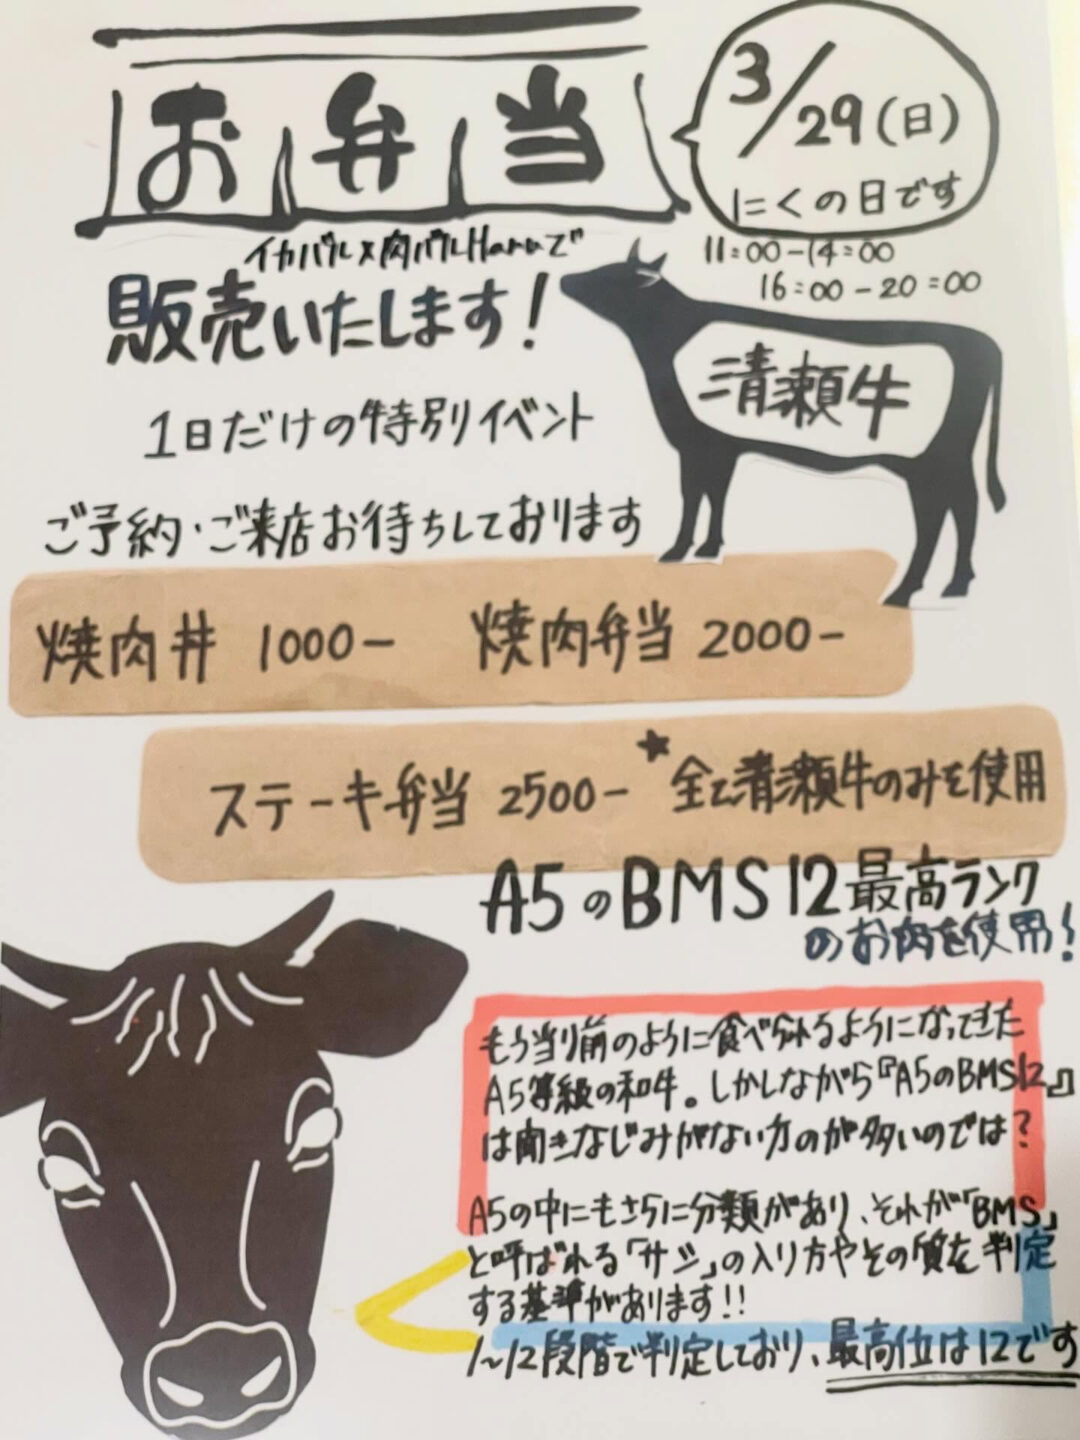 お弁当
3/29(日)
にくの日です
11:00-14:00
16:00-20:00
イカバル×肉バルHaruで
販売いたします!
清瀬牛
1日だけの特別イベント
ご予約・ご来店お待ちしております
焼肉丼 1000- 焼肉弁当 2000-
ステーキ弁当 2500- ★全て清瀬牛のみを使用
A5のBMS12最高ランク
のお肉を使用!
もう当り前のように食べられるようになってきた
A5等級の和牛。しかしながら『A5のBMS12』
は聞きなじみがない方のが多いのでは?
A5の中にもさらに分類があり、それが「BMS」
と呼ばれる「サシ」の入り方やその質を判定
する基準があります!!
1~12段階で判定しており、最高位は12です